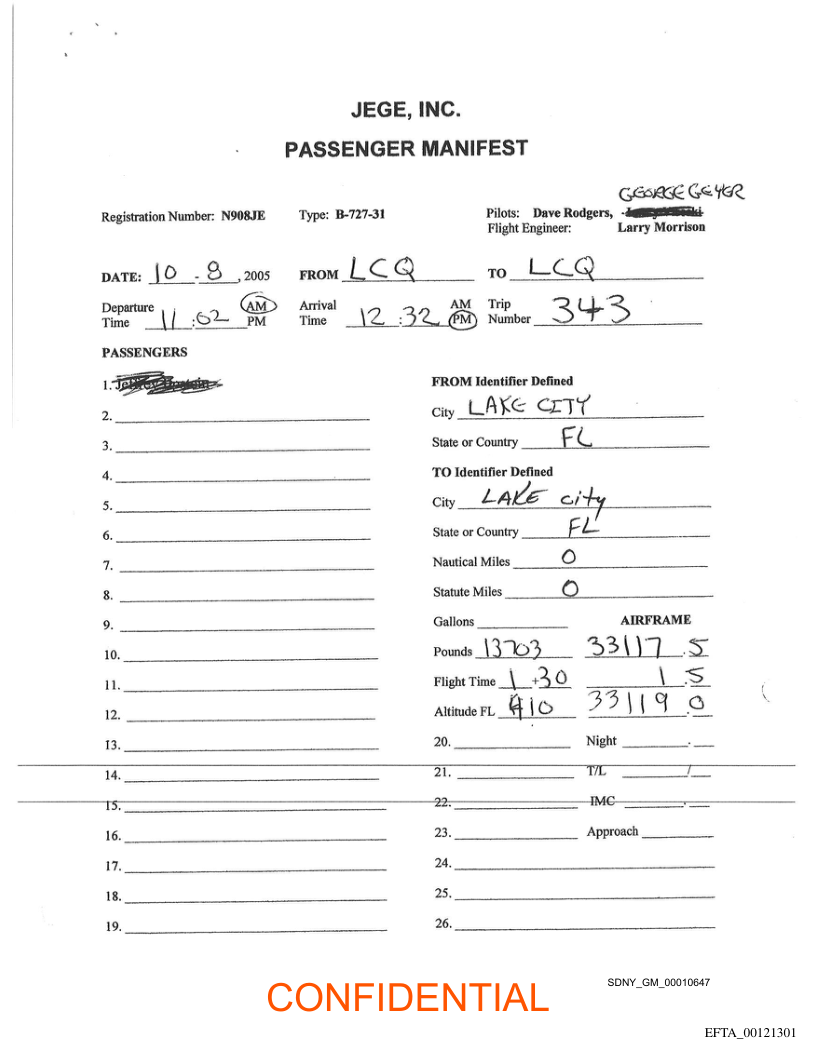 JEGE, INC.
PASSENGER MANIFEST
GEORGE GEYER
Registration Number: N908JE Type: B-727-31 Pilots: Dave Rodgers,
Flight Engineer: Larry Morrison
DATE: 10 - 8, 2005 FROM LCQ TO LCQ
Departure Time 11:02 AM PM Arrival Time 12:32 AM PM Trip Number 343
PASSENGERS
1. FROM Identifier Defined
2. City LAKE CITY
3. State or Country FL
4. TO Identifier Defined
5. City LAKE city
6. State or Country FL
7. Nautical Miles 0
8. Statute Miles 0
9. Gallons AIRFRAME
10. Pounds 13703 33117.5
11. Flight Time 1+30 1.5
12. Altitude FL 410 33119 0
13. 20. Night
14. 21. T/L /
15. 22. IMC
16. 23. Approach
17. 24.
18. 25.
19. 26.
SDNY_GM_00010647
CONFIDENTIAL
EFTA_00121301